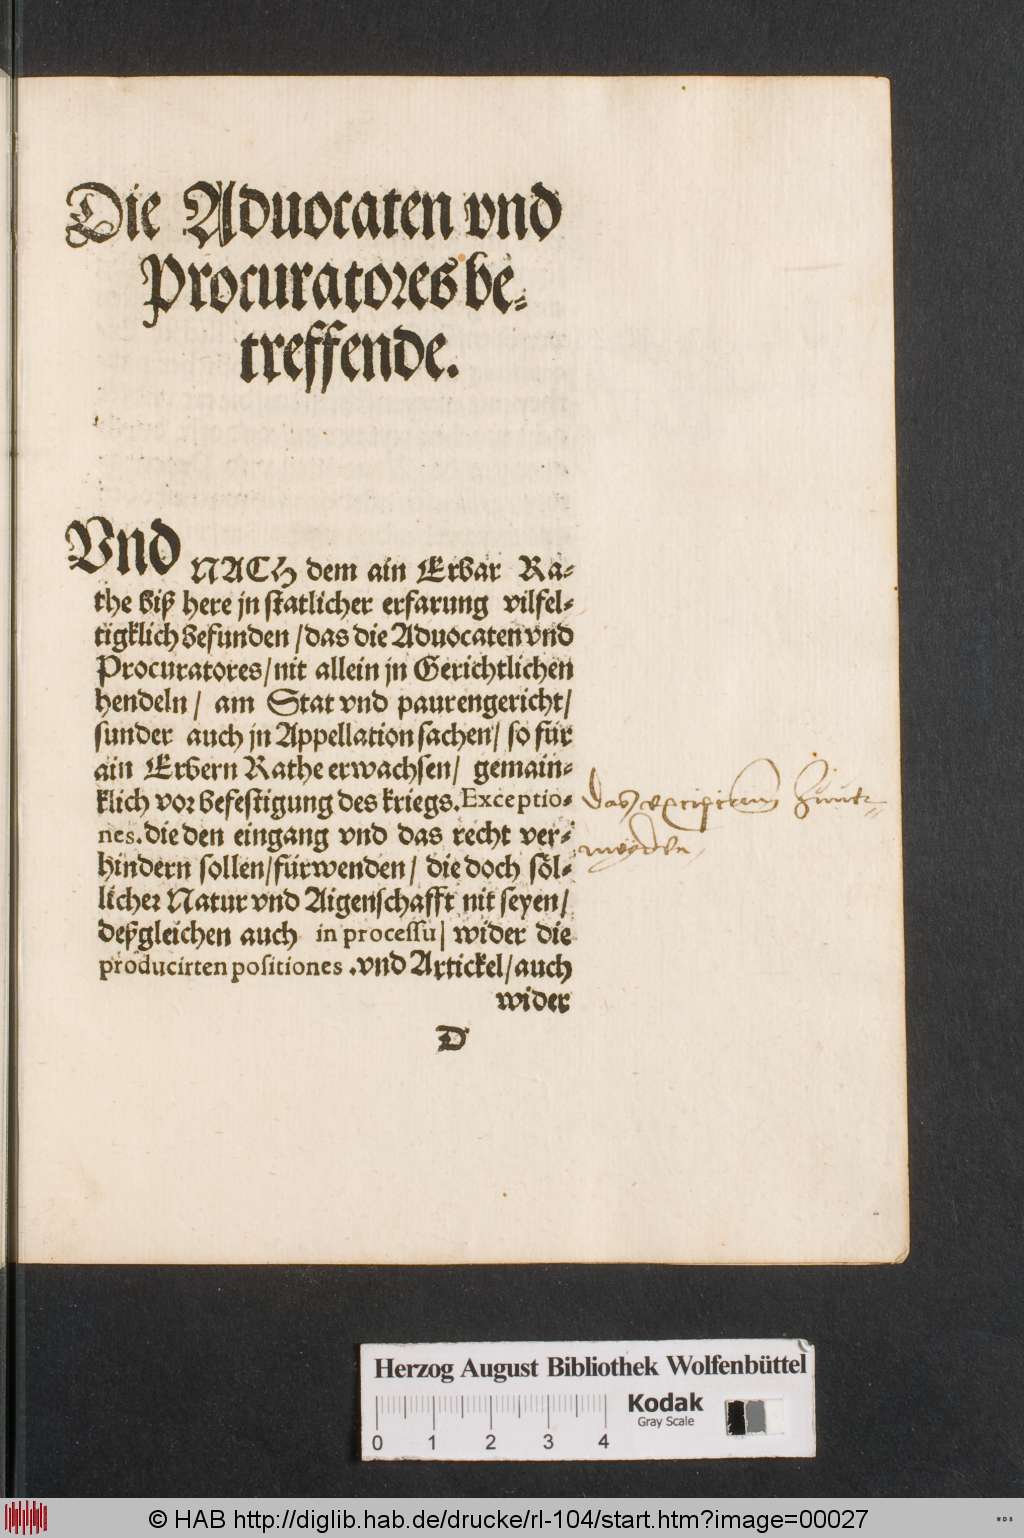 Die Aduocaten vnd
Procuratores be⸗
treffende.
Vnd NACH dem ain Erbar Ra⸗
the biß here jn statlicher erfarung vilfel⸗
tigklich befunden / das die Aduocaten vnd
Procuratores / nit allein jn Gerichtlichen
hendeln / am Stat vnd paurengericht /
sunder auch jn Appellation sachen / so für
ain Erbern Rathe erwachsen / gemain⸗
klich vor befestigung des kriegs. Exceptio⸗
nes. die den eingang vnd das recht ver⸗
hindern sollen / fürwenden / die doch söl⸗
licher Natur vnd Aigenschafft nit seyen /
deßgleichen auch in processu / wider die
producirten positiones . vnd Artickel / auch
wider
D
Das excipirenn
Herzog August Bibliothek Wolfenbüttel
Kodak
Gray Scale
0 1 2 3 4
© HAB http://diglib.hab.de/drucke/rl-104/start.htm?image=00027